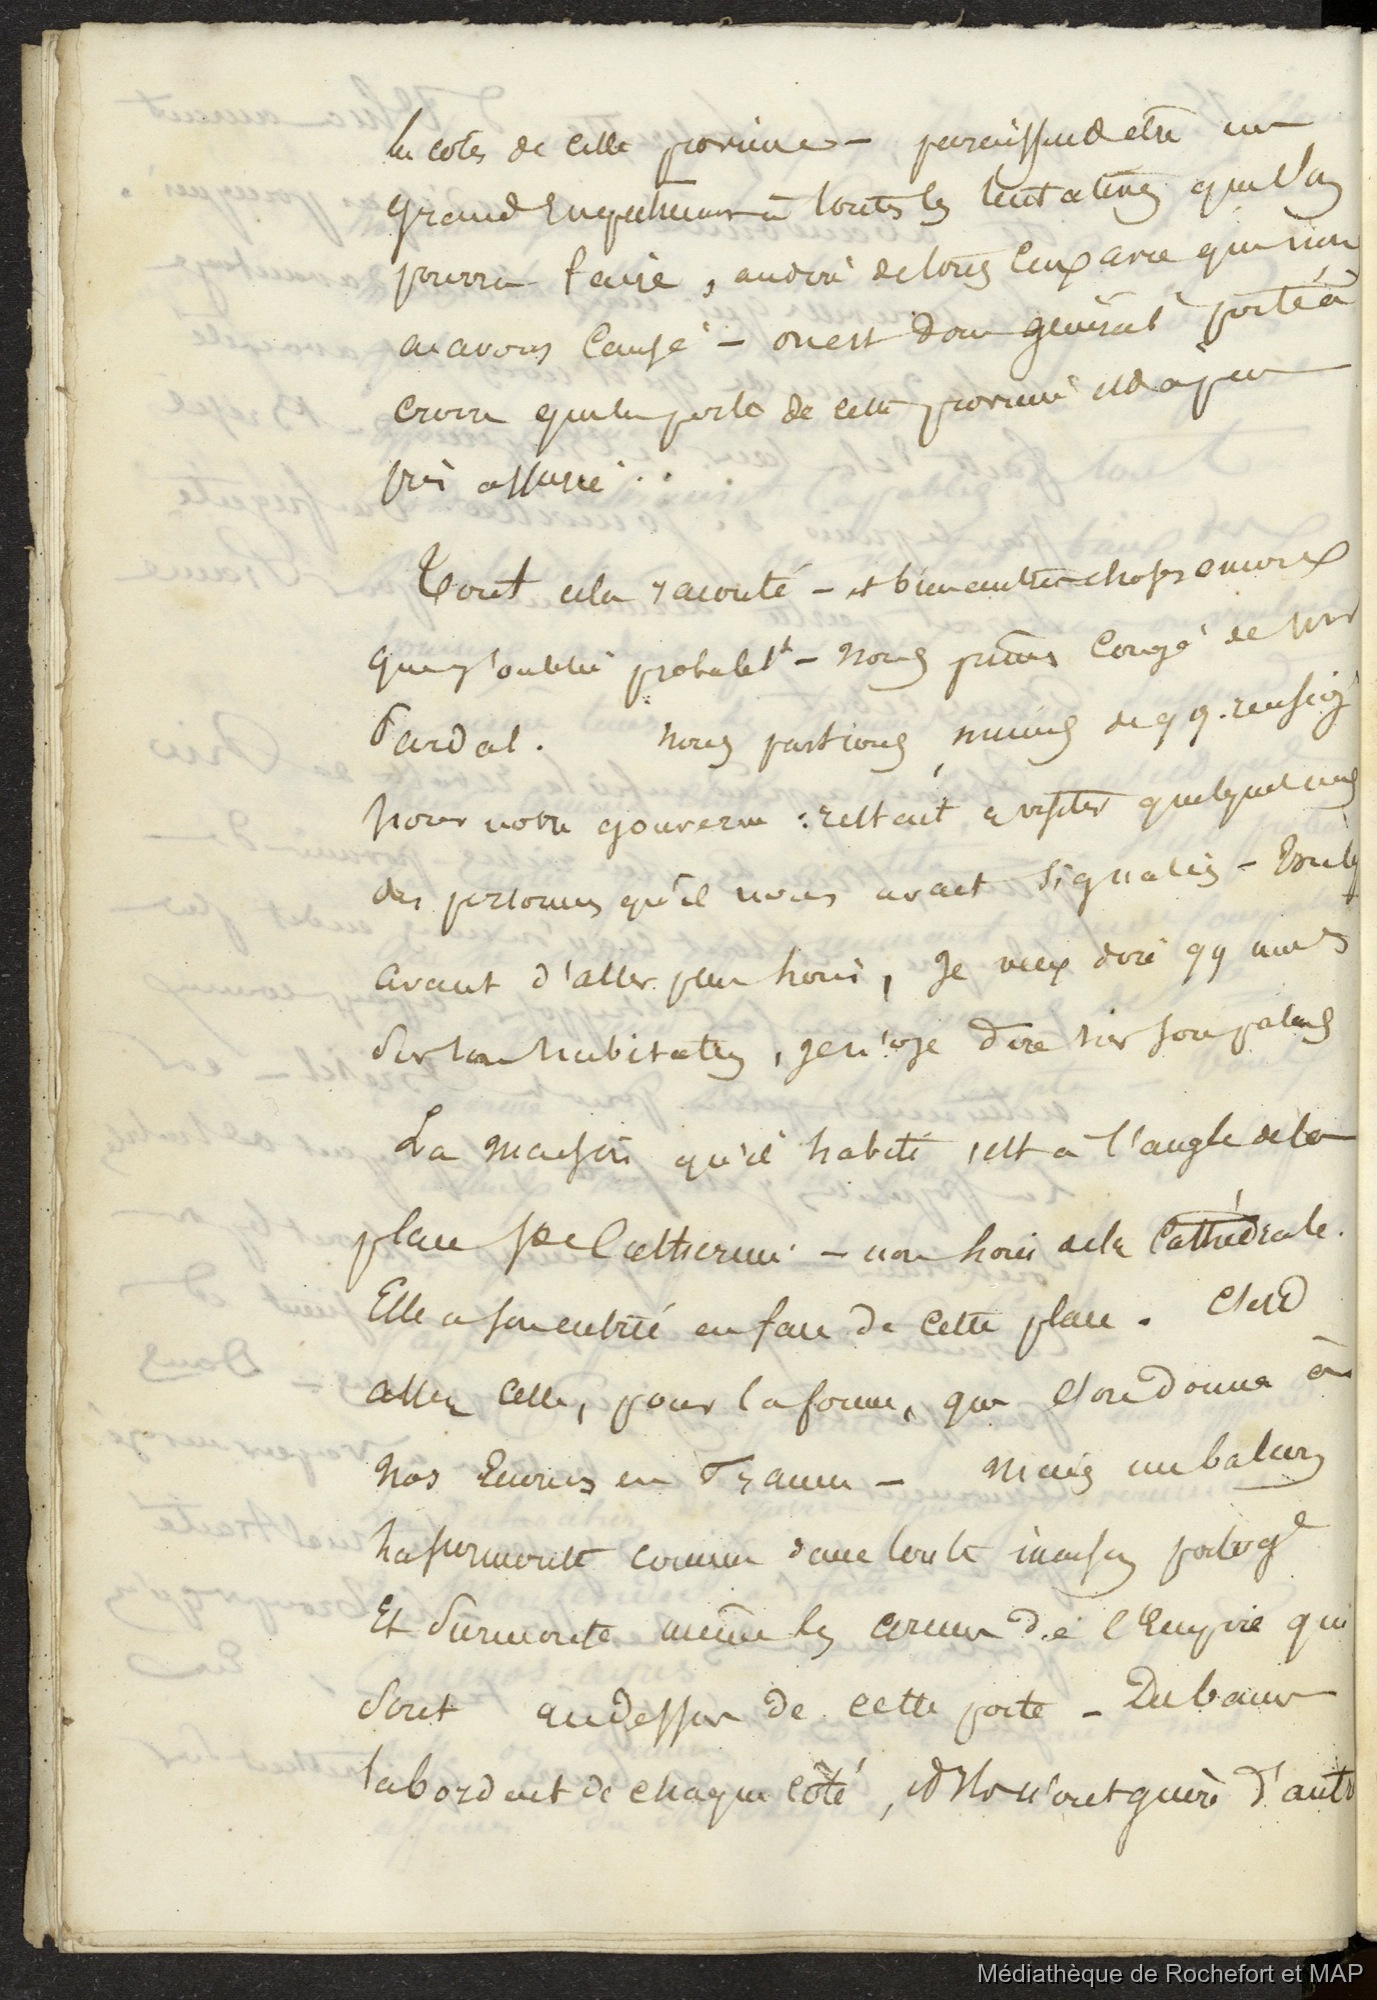 les côtes de cette province - paraissent être un
grand empêchement à toutes les tentatives que l'on
pourra faire, au dire de tous ceux avec qui nous
en avons causé - on est donc général^t porté à
croire que la perte de cette province est à peu
près assurée.
Tout cela raconté - et bien autres choses encore
que j'oublie probabl^t - nous prîmes congé de M^r
Pardal. Nous partions, munis de qq. renseig^ts
pour notre gouverne : restait à visiter quelques uns
des personnes qu'il nous avait signalés - Mais
avant d'aller plus loin, je veux dire qq mots
sur son habitation, je n'ose dire sur son palais
La maison qu'il habite, est à l'angle de la
place S^te Catherine - non loin de la Cathédrale.
Elle a son entrée en face de cette place. C'est
assez celle, pour la forme, que l'on donne à
nos Mairies en France - mais un balcon
la surmonte comme dans toute maison portug^e
Et surmonte même les armes de l'Empire qui
sont au dessus de cette porte - Deux bancs
l'abordent de chaque côté, et ils n'ont guère d'autr
Médiathèque de Rochefort et MAP